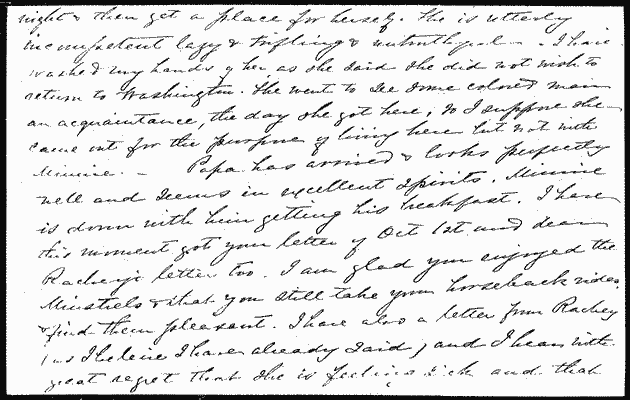 night & then get a place for herself. She is utterly
incompetent lazy & trifling & untruthful — . I have
washed my hands of her as she said she did not wish to
return to Washington. She went to see some colored man
an acquaintance, the day she got here, so I suppose she
came out for the purpose of living here but not with
Minnie. — Papa has arrived & looks perfectly
well and seems in excellent spirits. Minnie
is down with him getting his breakfast. I have
this moment got your letter of Oct 1st and dear
Rachey's letter too. I am glad you enjoyed the
Minstrels & that you still take your horseback rides,
& find them pleasant. I have also a letter from Rachey
(as I believe I have already said) and I hear with
great regret that she is feeling sick and that